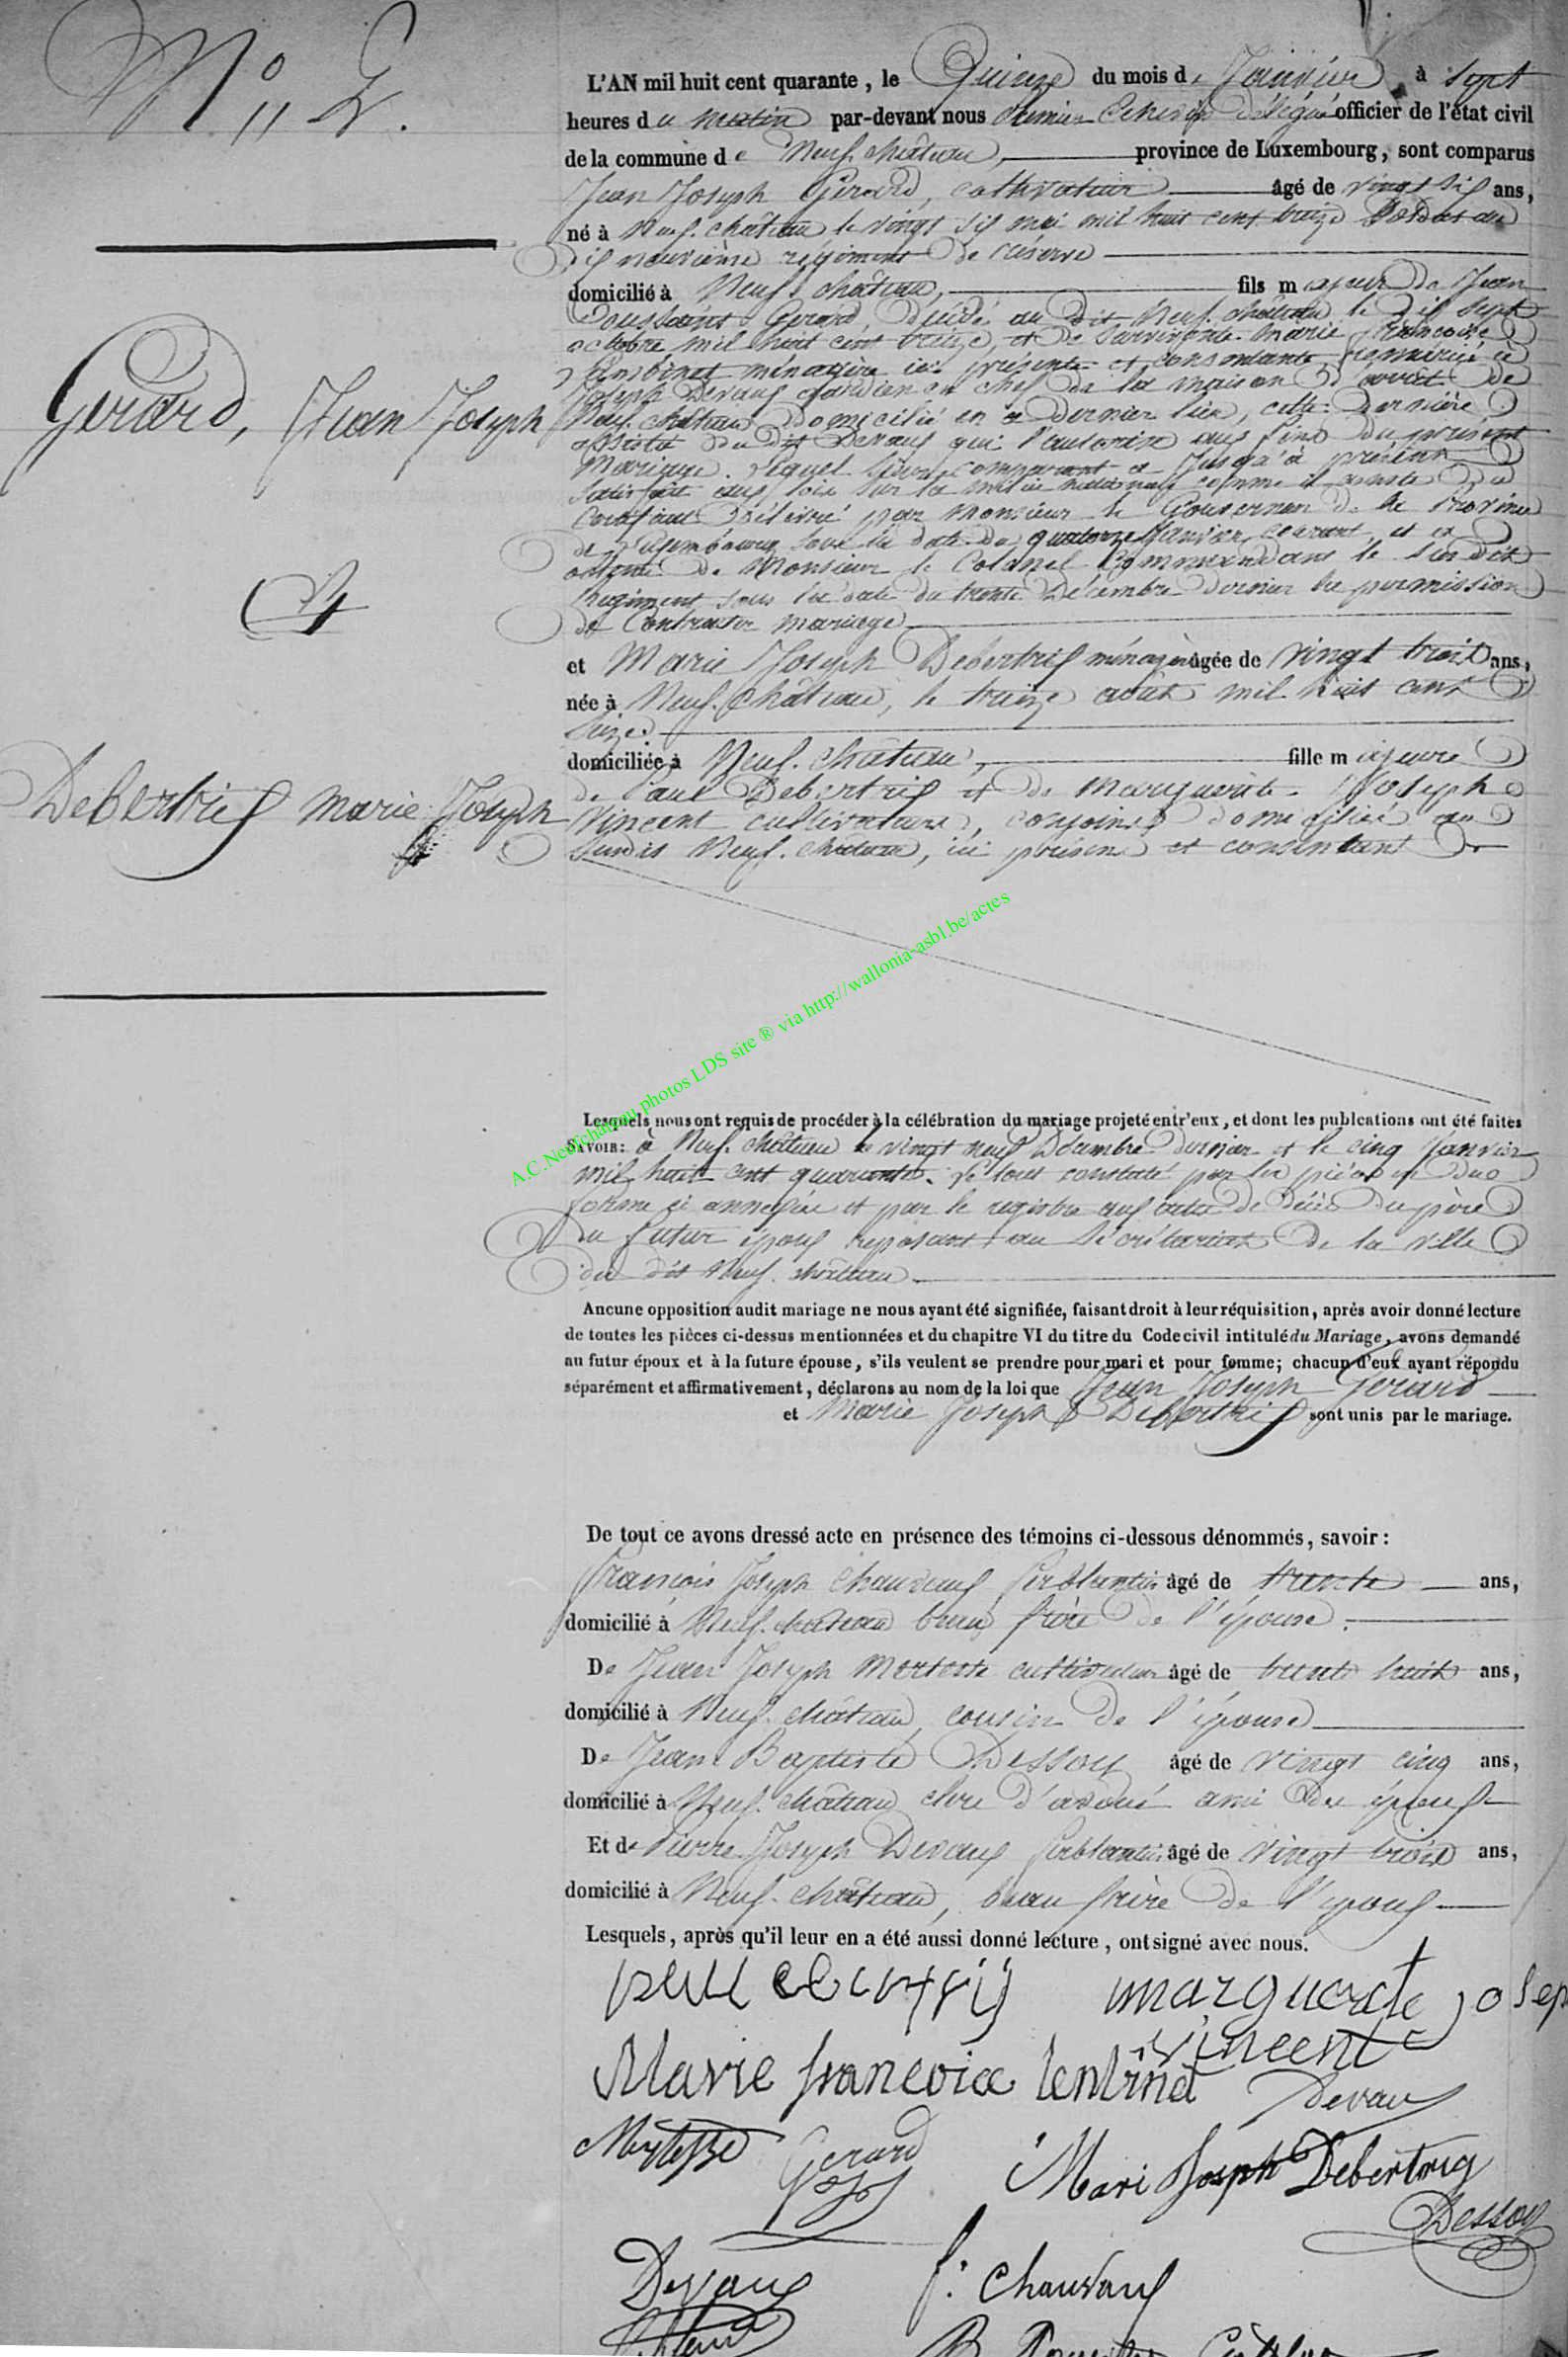 N° 2.
L'AN mil huit cent quarante, le Quinze du mois de Janvier à sept
heures du matin par-devant nous Premier Echevin Délégué officier de l'état civil
de la commune de Neufchâteau, province de Luxembourg, sont comparus
Jean Joseph Gerard, cultivateur âgé de vingt six ans,
né à Neufchâteau le vingt six mai mil huit cent treize Soldat au
dix neuvième régiment de réserve
domicilié à Neufchâteau, fils majeur de Jean
Toussaint Gerard, décédé au dit Neufchâteau le dix sept
octobre mil huit cent treize, et de survivante Marie Francoise
ménagère ici présente et consentante remariée à
Joseph Devaux Gardien en chef de la maison d'arrêt de
Neufchâteau domicilié en ce dernier lieu, cette dernière
assistée du dit Devaux qui l'autorise aux fins du présent
Mariage. Lequel comparant a jusqu'à présent
satisfait aux lois sur la milice nationale comme il conste du
Certificat délivré par Monsieur le Gouverneur de la Province
de Luxembourg sous la date du quatorze Janvier courant, et a
obtenu de Monsieur le Colonel Commandant le sus dit
Régiment sous la date du trente Décembre dernier la permission
de Contracter mariage
et Marie Joseph Debertrix ménagère âgée de vingt trois ans,
née à Neufchâteau, le treize août mil huit cent
seize.
domiciliée à Neufchâteau, fille majeure
de Paul Debertrix et de Marguerite Joseph
Vincent cultivateurs, conjoints domiciliés au
susdit Neufchâteau, ici présens et consentant
Gerard, Jean Joseph
Et
Debertrix Marie Joseph
A.C.Neufchateau photos LDS site ® via http://wallonia-asbl.be/actes
Lesquels nous ont requis de procéder à la célébration du mariage projeté entr'eux, et dont les publcations ont été faites
SAVOIR: à Neufchâteau le vingt neuf Décembre dernier et le cinq Janvier
mil huit cent quarante. Le tout constaté par les pièces en due
forme ci annexées et par le registre aux actes de décès du père
du futur époux reposant au Secrétariat de la ville
du dit Neufchâteau.
Ancune opposition audit mariage ne nous ayant été signifiée, faisant droit à leur réquisition, après avoir donné lecture
de toutes les pièces ci-dessus mentionnées et du chapitre VI du titre du Code civil intitulé du Mariage, avons demandé
au futur époux et à la future épouse, s'ils veulent se prendre pour mari et pour femme; chacun d'eux ayant répondu
séparément et affirmativement, déclarons au nom de la loi que Jean Joseph Gerard
et Marie Joseph Debertrix sont unis par le mariage.
De tout ce avons dressé acte en présence des témoins ci-dessous dénommés, savoir:
François Joseph Chauvaux ferblantier âgé de trente ans,
domicilié à Neufchâteau beau frère de l'épouse.
De Jean Joseph cultivateur âgé de trente huit ans,
domicilié à Neufchâteau, cousin de l'épouse
De Jean Baptiste Dessoy âgé de vingt cinq ans,
domicilié à Neufchâteau clerc d'avoué ami de époux
Et de Pierre Joseph Devaux ferblantier âgé de vingt trois ans,
domicilié à Neufchâteau, beau frère de l'époux
Lesquels, après qu'il leur en a été aussi donné lecture, ont signé avec nous.
marguerite josep
vincent
Marie francoice
Devaux
Gerard
Mari Joseph Debertrix
Dessoy
Devaux
f. Chauvaux